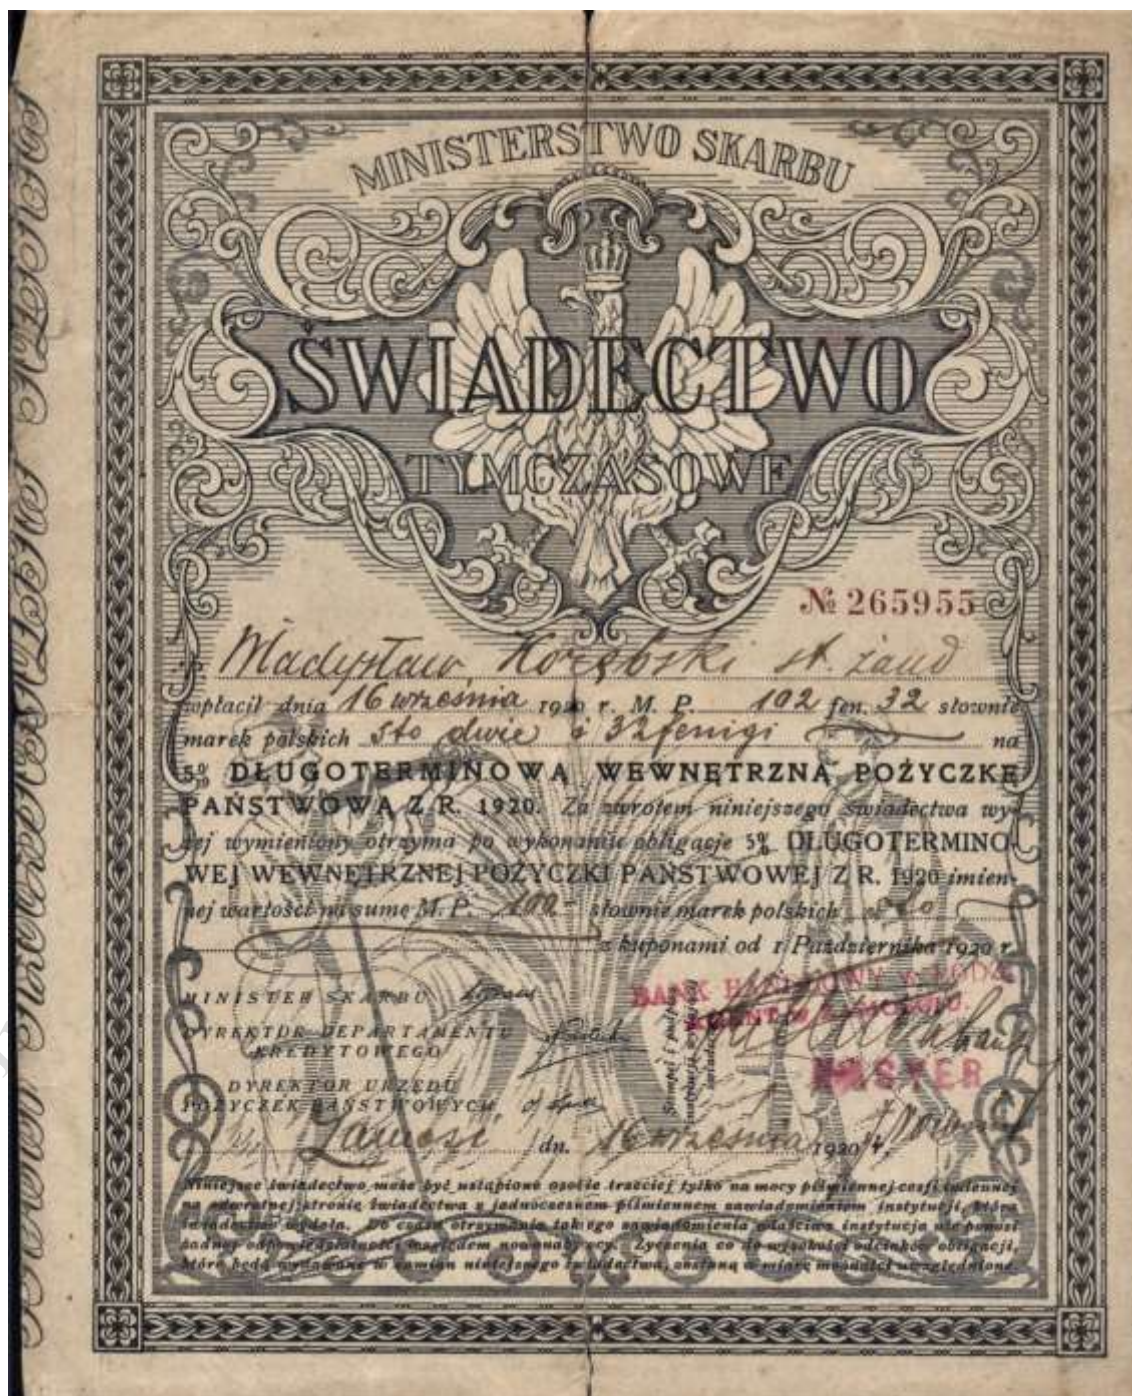 MINISTERSTWO SKARBU
ŚWIADECTWO
TYMCZASOWE
№ 265955
Władysław st. żand
wpłacił dnia 16 września 1920 r. M. P. 102 fen. 32 słownie
marek polskich sto dwie i 32 fenigi na
5% DŁUGOTERMINOWĄ WEWNĘTRZNĄ POŻYCZKĘ
PAŃSTWOWĄ Z R. 1920. Za zwrotem niniejszego świadectwa wy-
żej wymieniony otrzyma po wykonaniu obligacje 5% DŁUGOTERMINO-
WEJ WEWNĘTRZNEJ POŻYCZKI PAŃSTWOWEJ Z R. 1920 imien-
nej wartości na sumę M. P. 100 słownie marek polskich sto
z kuponami od 1 Października 1920 r.
MINISTER SKARBU
BANK HANDLOWY w ŁODZI
AGENT w ZAMOŚCIU.
DYREKTOR DEPARTAMENTU
KREDYTOWEGO
DYREKTOR URZĘDU
POŻYCZEK PAŃSTWOWYCH
Stempel i podpis
KASYER
Zamość dn. 16 września 1920 r.
Niniejsze świadectwo może być ustąpione osobie trzeciej tylko na mocy piśmiennej cesji
na odwrotnej stronie świadectwa z jednoczesnem piśmiennem zawiadomieniem instytucji, która
świadectwo wydała. Do czasu otrzymania takiego zawiadomienia właściwa instytucja nie ponosi
żadnej odpowiedzialności względem nowonabywcy. Życzenia co do wysokości odcinków obligacji,
które będą wydawane w zamian niniejszego świadectwa, zostaną w miarę możności uwzględnione.